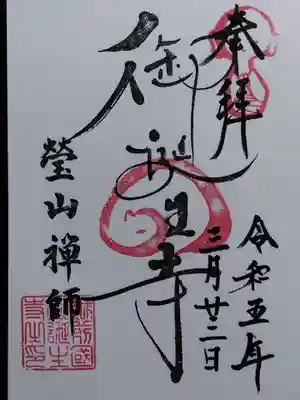 奉拝
令和五年
三月廿二日
御誕生寺
瑩山禅師
越前國
御誕生
寺之印